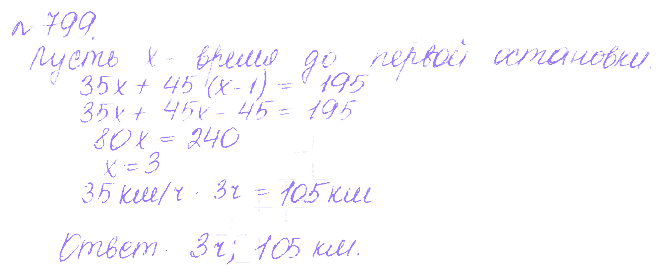 № 799.
Пусть x - время до первой остановки.
35x + 45 (x-1) = 195
35x + 45x - 45 = 195
80x = 240
x = 3
35 км/ч · 3ч = 105 км
Ответ. 3ч; 105 км.